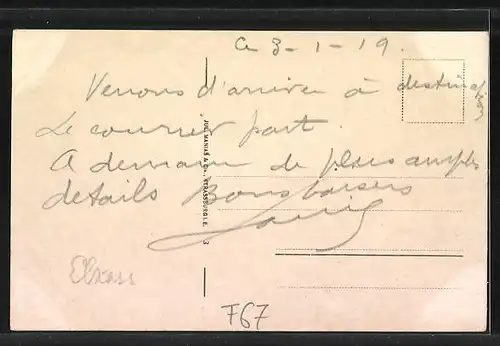 Ce 3-1-19.
Venons d'arriver à destination
Le courrier part.
A demain de plus amples
details Bons baisers
JUL. MANIAS & Cie., STRASSBURG I. E.
F67